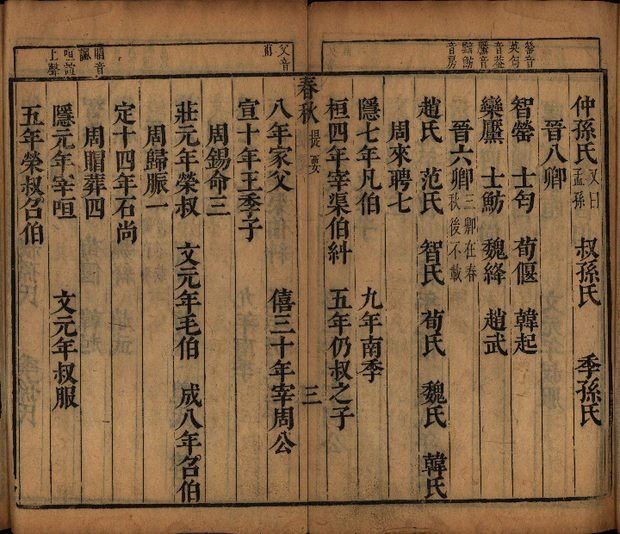 罃音
英匄
音葢
黶音
音房
父音
甫
賵音
諷
咺諠
上聲
仲孫氏 又曰孟孫 叔孫氏 季孫氏
晉八卿
智罃 士匄 荀偃 韓起
欒黶 士魴 魏絳 趙武
晉六卿 三卿在春秋後不載
趙氏 范氏 智氏 荀氏 魏氏 韓氏
周來聘七
隱七年凡伯 九年南季
桓四年宰渠伯糾 五年仍叔之子
春秋 提要 三
八年家父 僖三十年宰周公
宣十年王季子
周錫命三
莊元年榮叔 文元年毛伯 成八年召伯
周歸脤一
定十四年石尚
周賵葬四
隱元年宰咺 文元年叔服
五年榮叔召伯